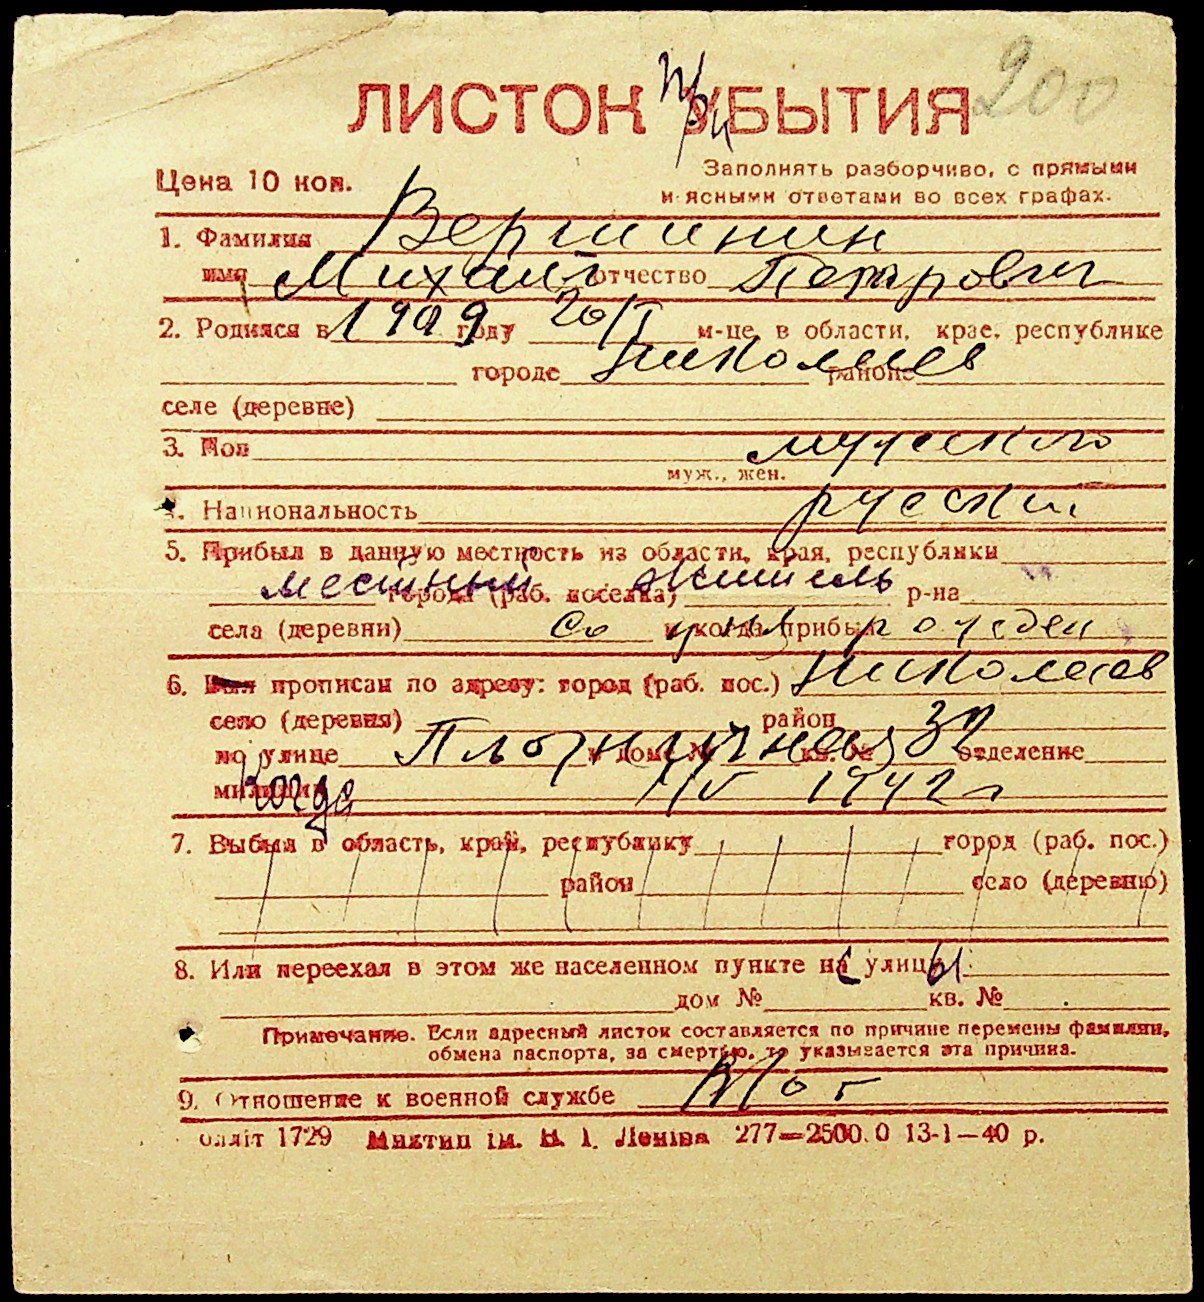 200
ЛИСТОК при УБЫТИЯ
Цена 10 коп.
Заполнять разборчиво, с прямыми
и ясными ответами во всех графах.
1. Фамилия Вершинин
имя Михаил отчество Петрович
2. Родился в 1909 году 20/I м-це, в области, крае, республике
городе Николаев районе
селе (деревне)
3. Пол мужского
муж., жен.
4. Национальность русский
5. Прибыл в данную местность из области, края, республики
местный города (раб. поселка) житель р-на
села (деревни) и когда прибыл рожден
6. Был прописан по адресу: город (раб. пос.) Николаев
село (деревня) район
по улице и доме № кв. № 32 отделение
милиции когда 1/V 1942 г
7. Выбыл в область, край, республику город (раб. пос.)
район село (деревню)
8. Или переехал в этом же населенном пункте на с улицу ы
дом № кв. №
Примечание. Если адресный листок составляется по причине перемены фамилии,
обмена паспорта, за смертью, то указывается эта причина.
9. Отношение к военной службе
облліт 1729 Миктип ім. В. І. Леніна 277—2500.0 13-1—40 р.